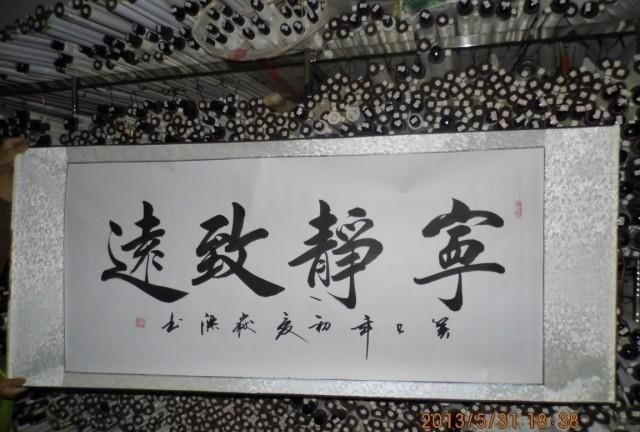 寧靜致遠
癸巳年初夏 书
2013/5/31 18:38